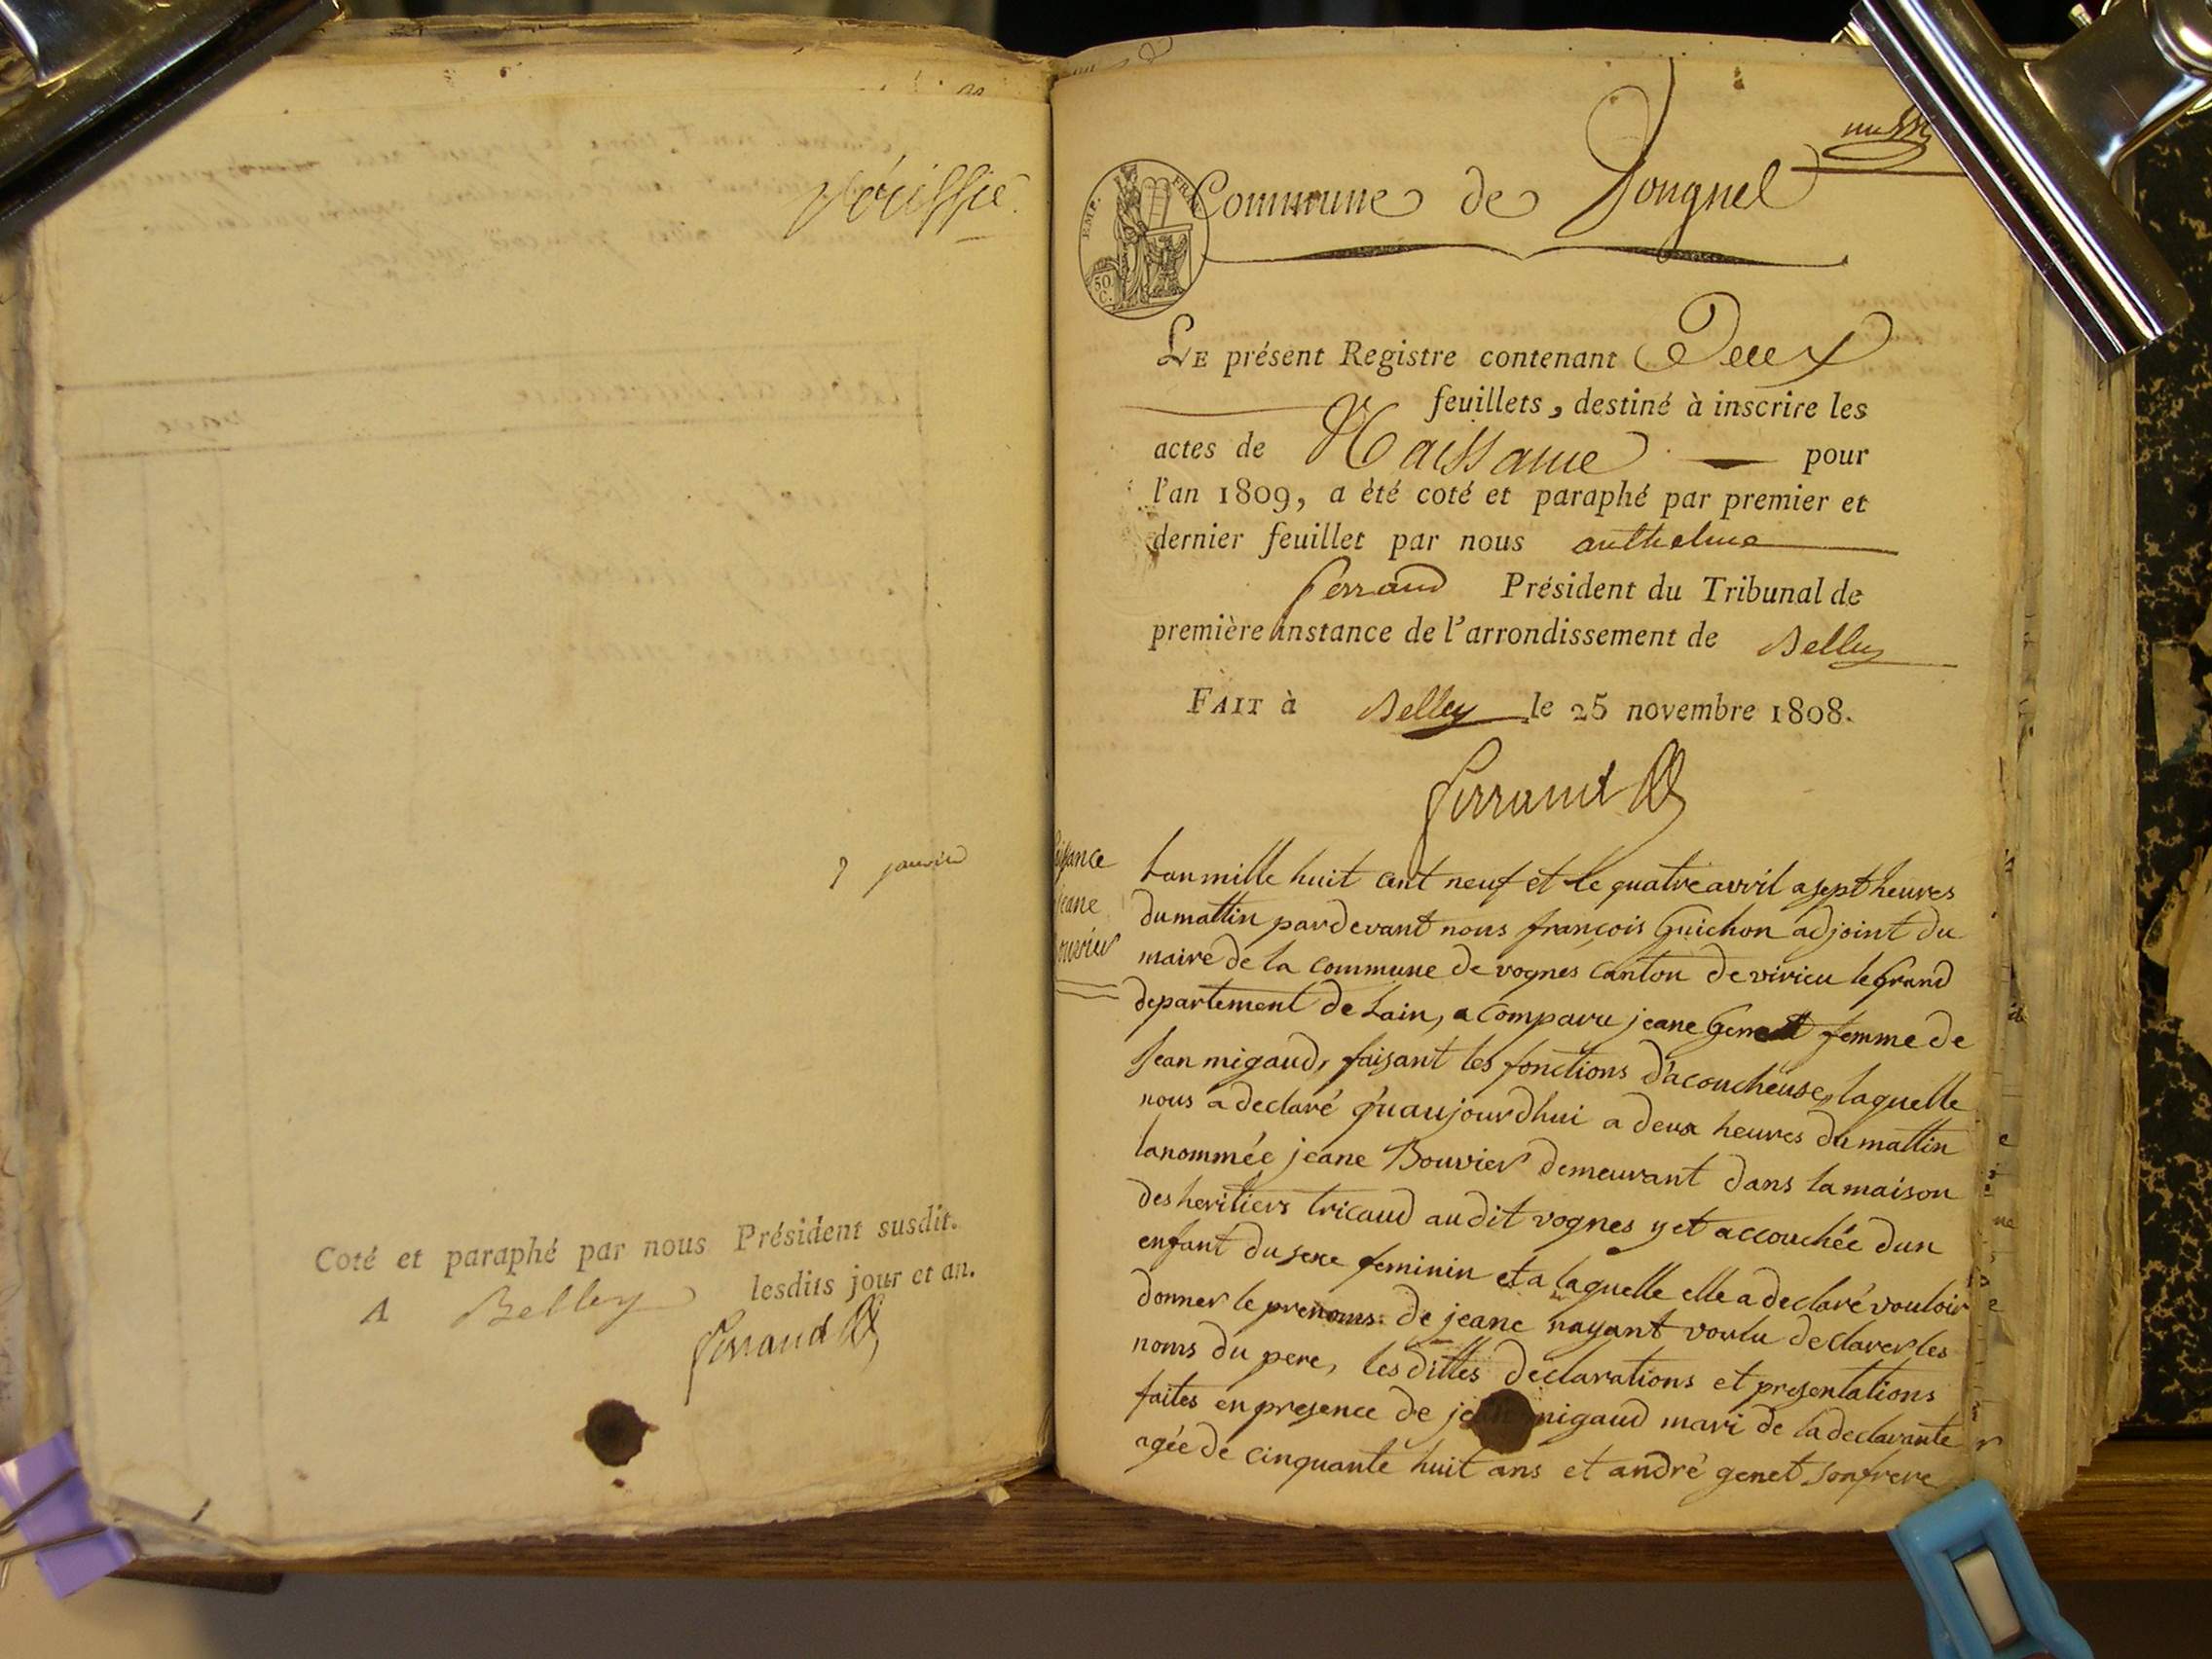 vérifié
7 janvier
Coté et paraphé par nous Président susdit.
A Belley lesdits jour et an.
Ferrand
Commune de Vongnel
EMP. FRAN.
50 C.
LE présent Registre contenant Deux
feuillets, destiné à inscrire les
actes de Naissance pour
l'an 1809, a été coté et paraphé par premier et
dernier feuillet par nous anthelme
ferrand Président du Tribunal de
première instance de l'arrondissement de Belley
FAIT à Belley le 25 novembre 1808.
ferrand
issance
jeane
ouvier
Lan mille huit cent neuf et le quatre avril a sept heures
du mattin pardevant nous françois Guichon adjoint du
maire de la commune de vognes canton de virieu le grand
departement de Lain, a comparu jeane Genet femme de
Jean migaud, faisant les fonctions d'acoucheuse, laquelle
nous a declaré qu'aujourdhui a deux heures du mattin
lanommée jeane Bouvier demeurant dans la maison
des heritiers tricaud audit vognes y et accouchée dun
enfant du sexe feminin et a laquelle elle a declaré vouloir
donner le prenoms de jeane nayant voulu declarer les
noms du pere, les dittes declarations et presentations
faites en presence de jean migaud mari de la declarante
agée de cinquante huit ans et andré genet son frere